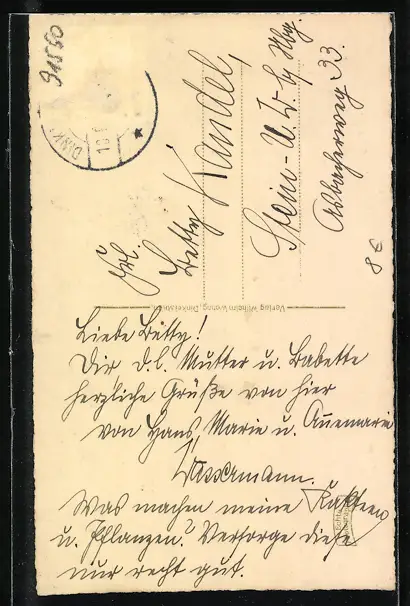 91550
DINK
Frl.
Betty Kandel,
Stein- U. W. by Nbg.
Asbacherweg 33.
8 €
Verlag Wilhelm Wiering, Dinkelsbühl
Liebe Betty!
Dir d. l. Mutter u. Babette
herzliche Grüße von hier
von Hans, Marie u. Annemarie
Wassermann.
Was machen meine Kakteen
u. Pflanzen? Versorge diese
nur recht gut.